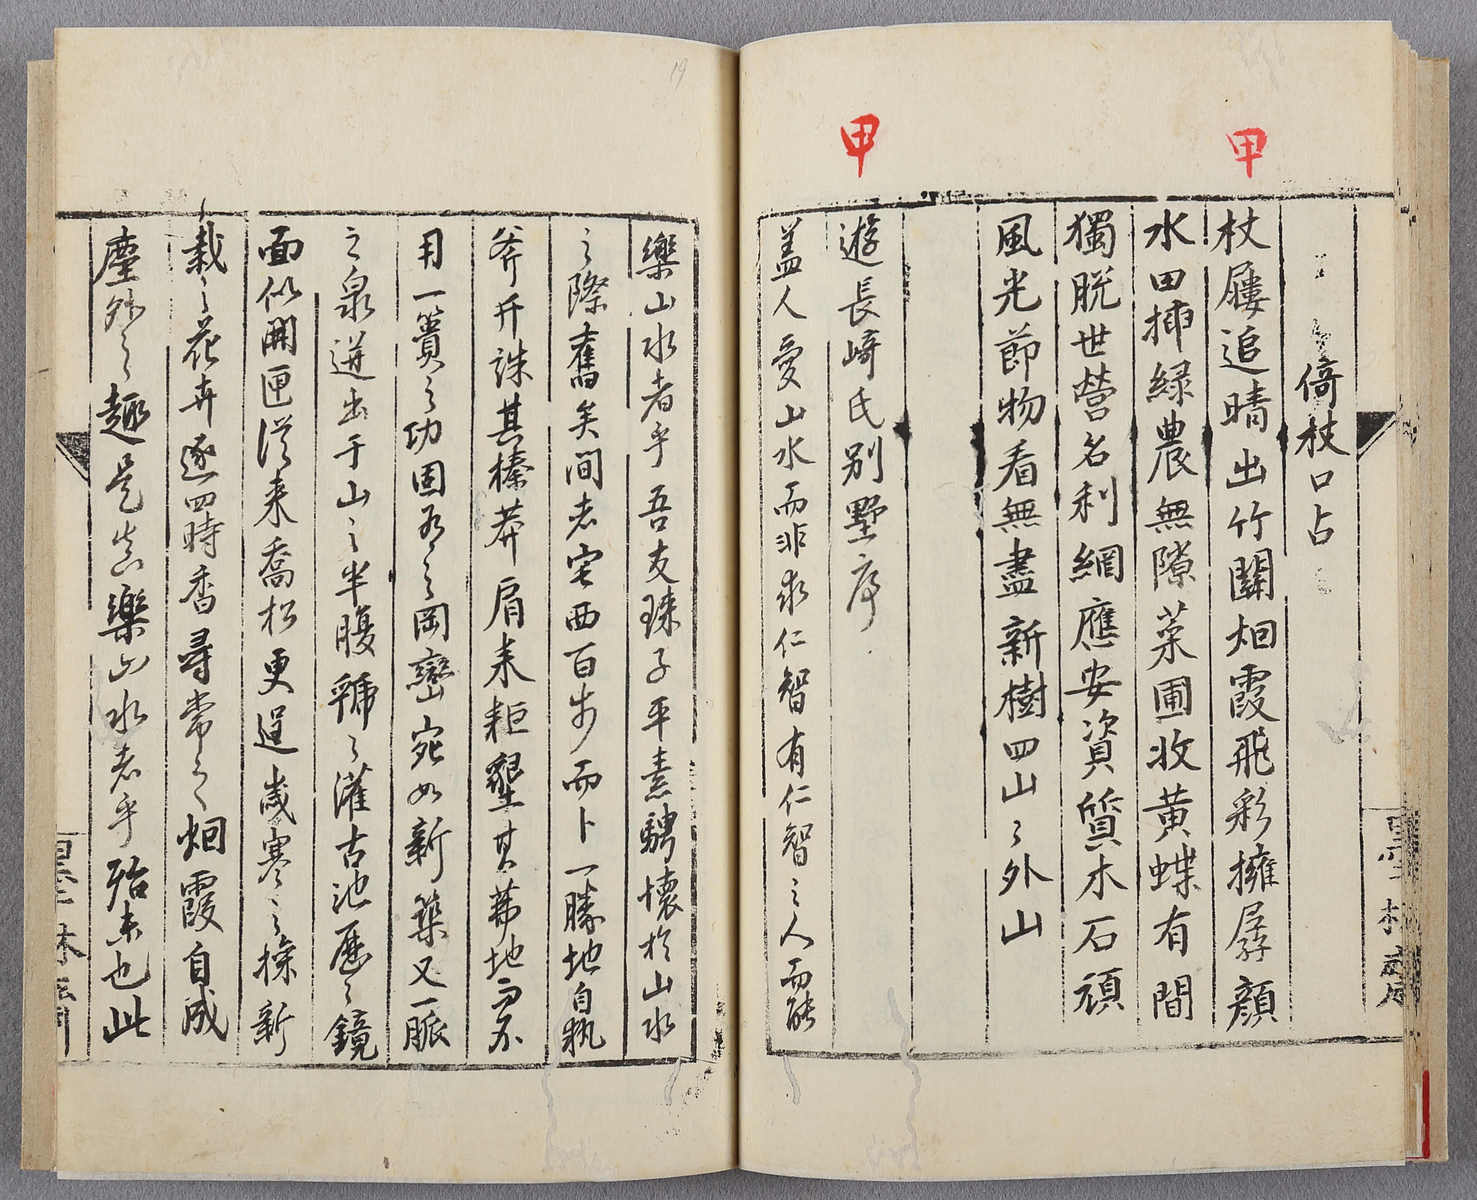 甲
甲
倚杖口占
杖屨追晴出竹關烟霞飛彩擁孱顔
水田挿緑農無隙菜圃收黄蝶有間
獨脱世營名利網應安資質木石頑
風光節物看無盡新樹四山〻外山
遊長崎氏別墅序
蓋人愛山水而非求仁智有仁智之人而能
樂山水者乎吾友珠子平素騁懷於山水
之際舊矣間者宅西百步而卜一勝地自執
斧斤誅其榛莽肩耒耟墾其茀地而不
用一簣之功固有之岡巒宛如新築又一脈
之泉迸出于山之半腹號〻灌古池歴〻鏡
面似開匣從来喬松更逞歳寒之操新
栽之花卉逐四時香尋常之烟霞自成
塵外之趣是豈樂山水者乎殆未也此